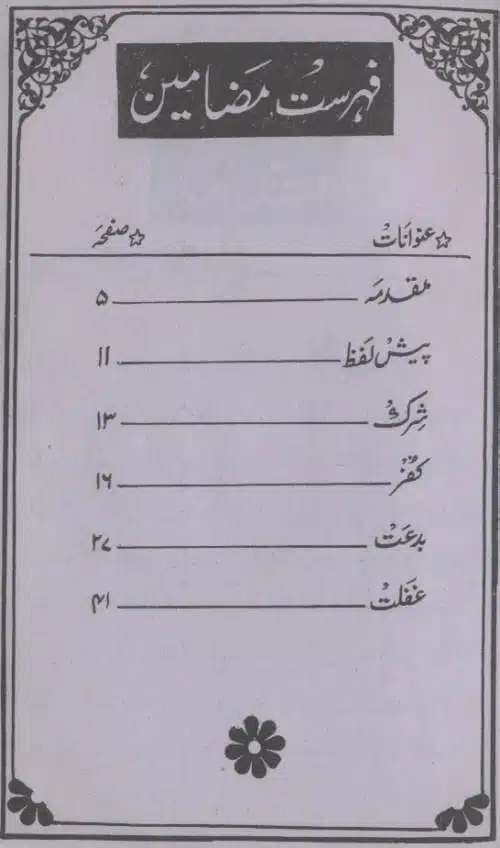 فہرست مضامین
☆ عنوانات ☆ صفحہ
مقدمہ ۵
پیش لفظ ۱۱
شرک ۱۳
کفر ۱۶
بدعت ۲۷
غفلت ۴۱